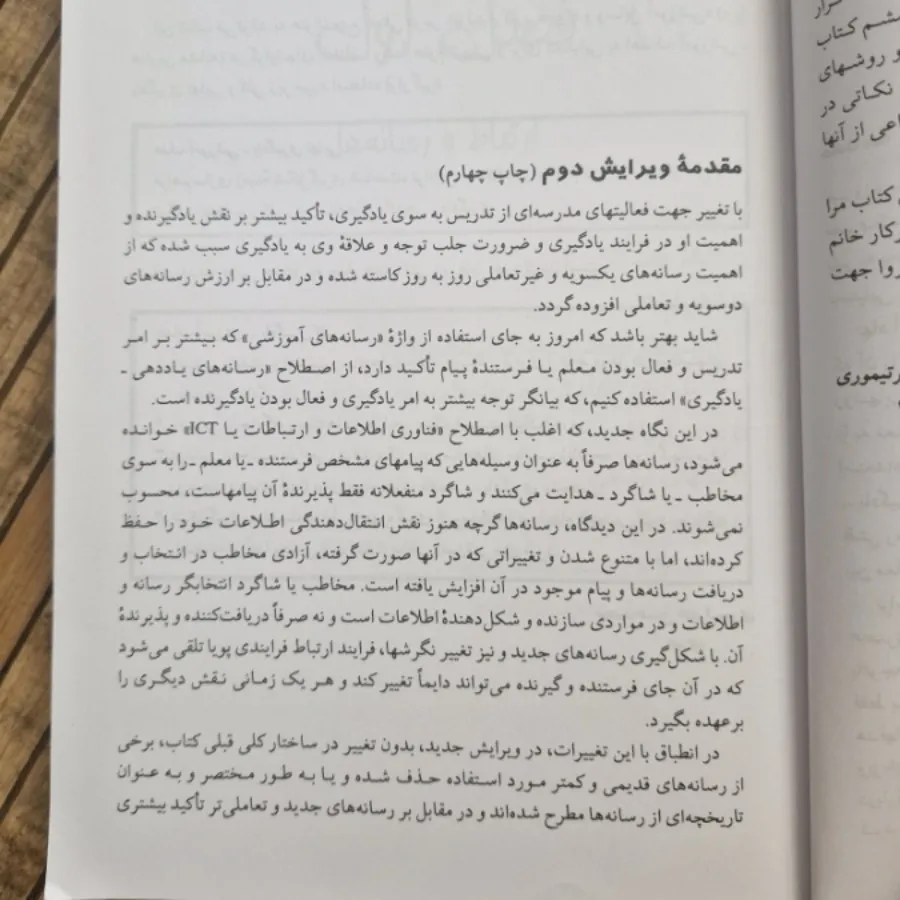 مقدمهٔ ویرایش دوم (چاپ چهارم)
با تغییر جهت فعالیتهای مدرسه‌ای از تدریس به سوی یادگیری، تأکید بیشتر بر نقش یادگیرنده و
اهمیت او در فرایند یادگیری و ضرورت جلب توجه و علاقهٔ وی به یادگیری سبب شده که از
اهمیت رسانه‌های یکسویه و غیرتعاملی روز به روز کاسته شده و در مقابل بر ارزش رسانه‌های
دوسویه و تعاملی افزوده گردد.
شاید بهتر باشد که امروز به جای استفاده از واژهٔ «رسانه‌های آموزشی» که بیشتر بر امر
تدریس و فعال بودن معلم یا فرستندهٔ پیام تأکید دارد، از اصطلاح «رسانه‌های یاددهی ـ
یادگیری» استفاده کنیم، که بیانگر توجه بیشتر به امر یادگیری و فعال بودن یادگیرنده است.
در این نگاه جدید، که اغلب با اصطلاح «فناوری اطلاعات و ارتباطات یا ICT» خوانده
می‌شود، رسانه‌ها صرفاً به عنوان وسیله‌هایی که پیامهای مشخص فرستنده ـ یا معلم ـ را به سوی
مخاطب ـ یا شاگرد ـ هدایت می‌کنند و شاگرد منفعلانه فقط پذیرندهٔ آن پیامهاست، محسوب
نمی‌شوند. در این دیدگاه، رسانه‌ها گرچه هنوز نقش انتقال‌دهندگی اطلاعات خود را حفظ
کرده‌اند، اما با متنوع شدن و تغییراتی که در آنها صورت گرفته، آزادی مخاطب در انتخاب و
دریافت رسانه‌ها و پیام موجود در آن افزایش یافته است. مخاطب یا شاگرد انتخابگر رسانه و
اطلاعات و در مواردی سازنده و شکل‌دهندهٔ اطلاعات است و نه صرفاً دریافت‌کننده و پذیرندهٔ
آن. با شکل‌گیری رسانه‌های جدید و نیز تغییر نگرشها، فرایند ارتباط فرایندی پویا تلقی می‌شود
که در آن جای فرستنده و گیرنده می‌تواند دایماً تغییر کند و هر یک زمانی نقش دیگری را
برعهده بگیرد.
در انطباق با این تغییرات، در ویرایش جدید، بدون تغییر در ساختار کلی قبلی کتاب، برخی
از رسانه‌های قدیمی و کمتر مورد استفاده حذف شده و یا به طور مختصر و به عنوان
تاریخچه‌ای از رسانه‌ها مطرح شده‌اند و در مقابل بر رسانه‌های جدید و تعاملی‌تر تأکید بیشتری
کتاب
و روشهای
نکاتی در
از آنها
کتاب مرا
خانم
جهت